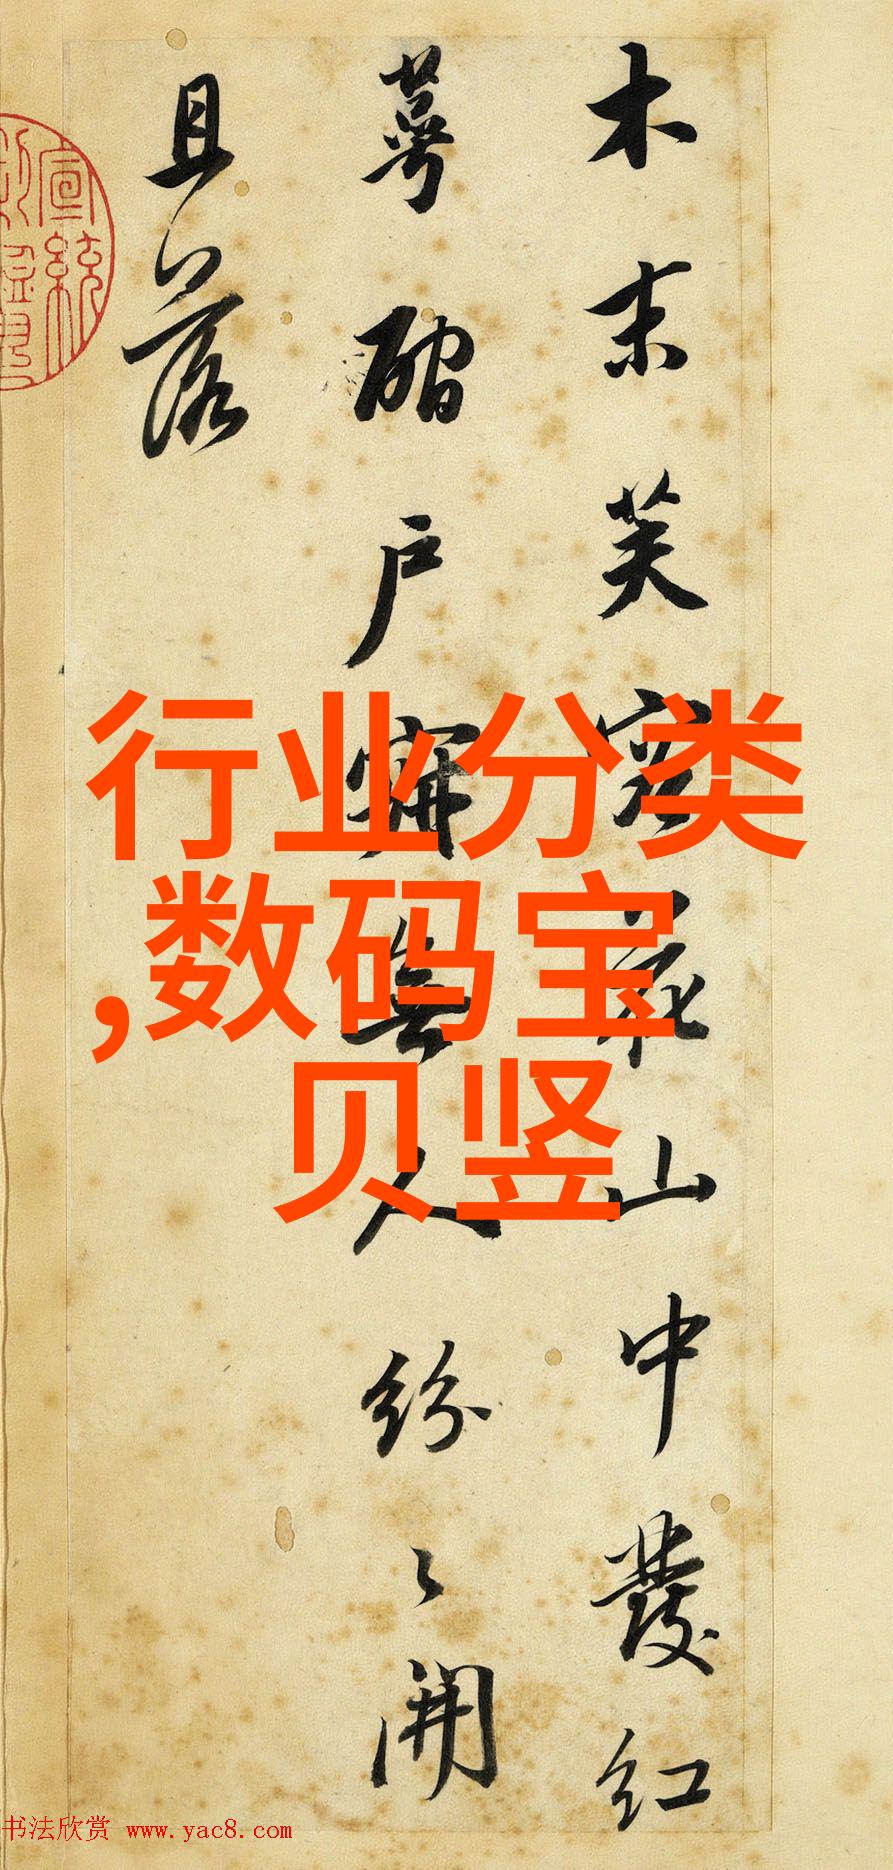 木末芙容花山中發紅
萼磵戶寂無人紛〻開
且落
宣統
行业分类
,数码宝
贝竖
书法欣赏 www.yac8.com